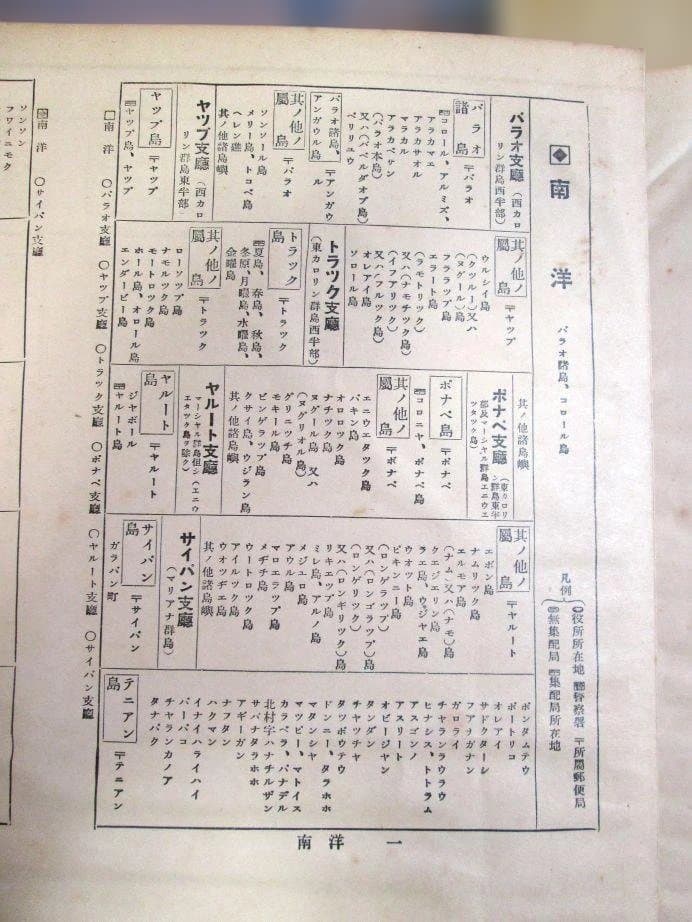 南洋
パラオ諸島、コロール島
凡例
◎役所所在地 警察署 〒所屬郵便局
無集配局 集配局所在地
パラオ支廳(西カロリン群島西半部)
パラオ諸島
〒パラオ
コロール、アルミズ、
アラカマエ
アラカサオル
マラカル
アラカベサン
(パラオ本島)
又ハ(バベルダオブ島)
ペリリユウ
パラオ諸島、アンガウル島
〒アンガウル
其ノ他ノ屬島
〒パラオ
ソンソール島
メリー島、トコベ島
ヘレン礁
其ノ他諸島嶼
ヤツプ支廳(西カロリン群島東半部)
ヤツプ島
〒ヤツプ
ヤツプ島、ヤツプ
其ノ他ノ屬島
〒ヤツプ
ウルシイ島
(クツルー)又ハ
(ヌグール)島
フララツプ島
エラート島
(ラモトリツク)
又ハ(ナモチツク)島
(イフアリツク)
又ハ(フルツク島)
オレアイ島
ソロール島
トラツク支廳
(東カロリン群島西半部)
トラツク島
〒トラツク
夏島、春島、秋島、
冬島、月曜島、水曜島、
金曜島
其ノ他ノ屬島
〒トラツク
ローソツプ島
ナモルツク島
モートロツク島
ホール島、オロール島
エンダービー島
其ノ他諸島嶼
ポナペ支廳(東カロリン群島東半部及マーシヤル群島エニウエツタツク島)
ポナペ島
〒ポナペ
コロニヤ、ポナペ島
其ノ他ノ屬島
〒ポナペ
エニウエタツク島
パキン島
オロロツク島
ナチツク島
ヌグール島 又ハ
(ヌグリオル島)
グリニツチ島
モキール島
ピンゲラツプ島
クサイ島、ウジラン島
其ノ他諸島嶼
ヤルート支廳(マーシヤル群島但シエニウエタツク島ヲ除ク)
ヤルート島
〒ヤルート
ジヤボール
ヤルート島
其ノ他ノ屬島
〒ヤルート
エボン島
ナムリツク島
エルモア島
(ナム)又ハ(ナモ)島
クエジエリン島
ラエ島、ウジヤエ島
ウオツト島
ビキンニー島
(ロンゲラツプ)
又ハ(ロンゴラツプ)島
(ロンゲリツク)
又ハ(ロンギリツク)島
リキエツプ島
ミレ島、アルノ島
メジユロ島
アウル島
マロエラツプ島
メヂチ島
ウートロツク島
アイルツク島
ウオツヂエ島
其ノ他諸島嶼
サイパン支廳
(マリアナ群島)
サイパン島
〒サイパン
ガラパン町
ポンタムテウ
ポートリコ
オレアイ
サドクターレ
フアナガナン
ガロライ
チヤランラウラウ
ヒナシス、トトラム
アスゴンノ
アスリート
オビージヤン
タンダン
チヤツチヤ
タツポウテウ
ドンニー、タラホホ
マタンシヤ
マツピー、マトイス
カラベラ、バナデル
北村字ハナチルザン
サバナタラホホ
アギーガン
ナフタン
ハクマン
イナイハライハイ
パーパコ
チヤランカノア
タナパク
テニアン島
〒テニアン
南洋 ○パラオ支廳 ○ヤツプ支廳 ○トラツク支廳 ○ポナペ支廳 ○ヤルート支廳 ○サイパン支廳
南洋 ○サイパン支廳
ソンソン
フワイニモク
南洋 一